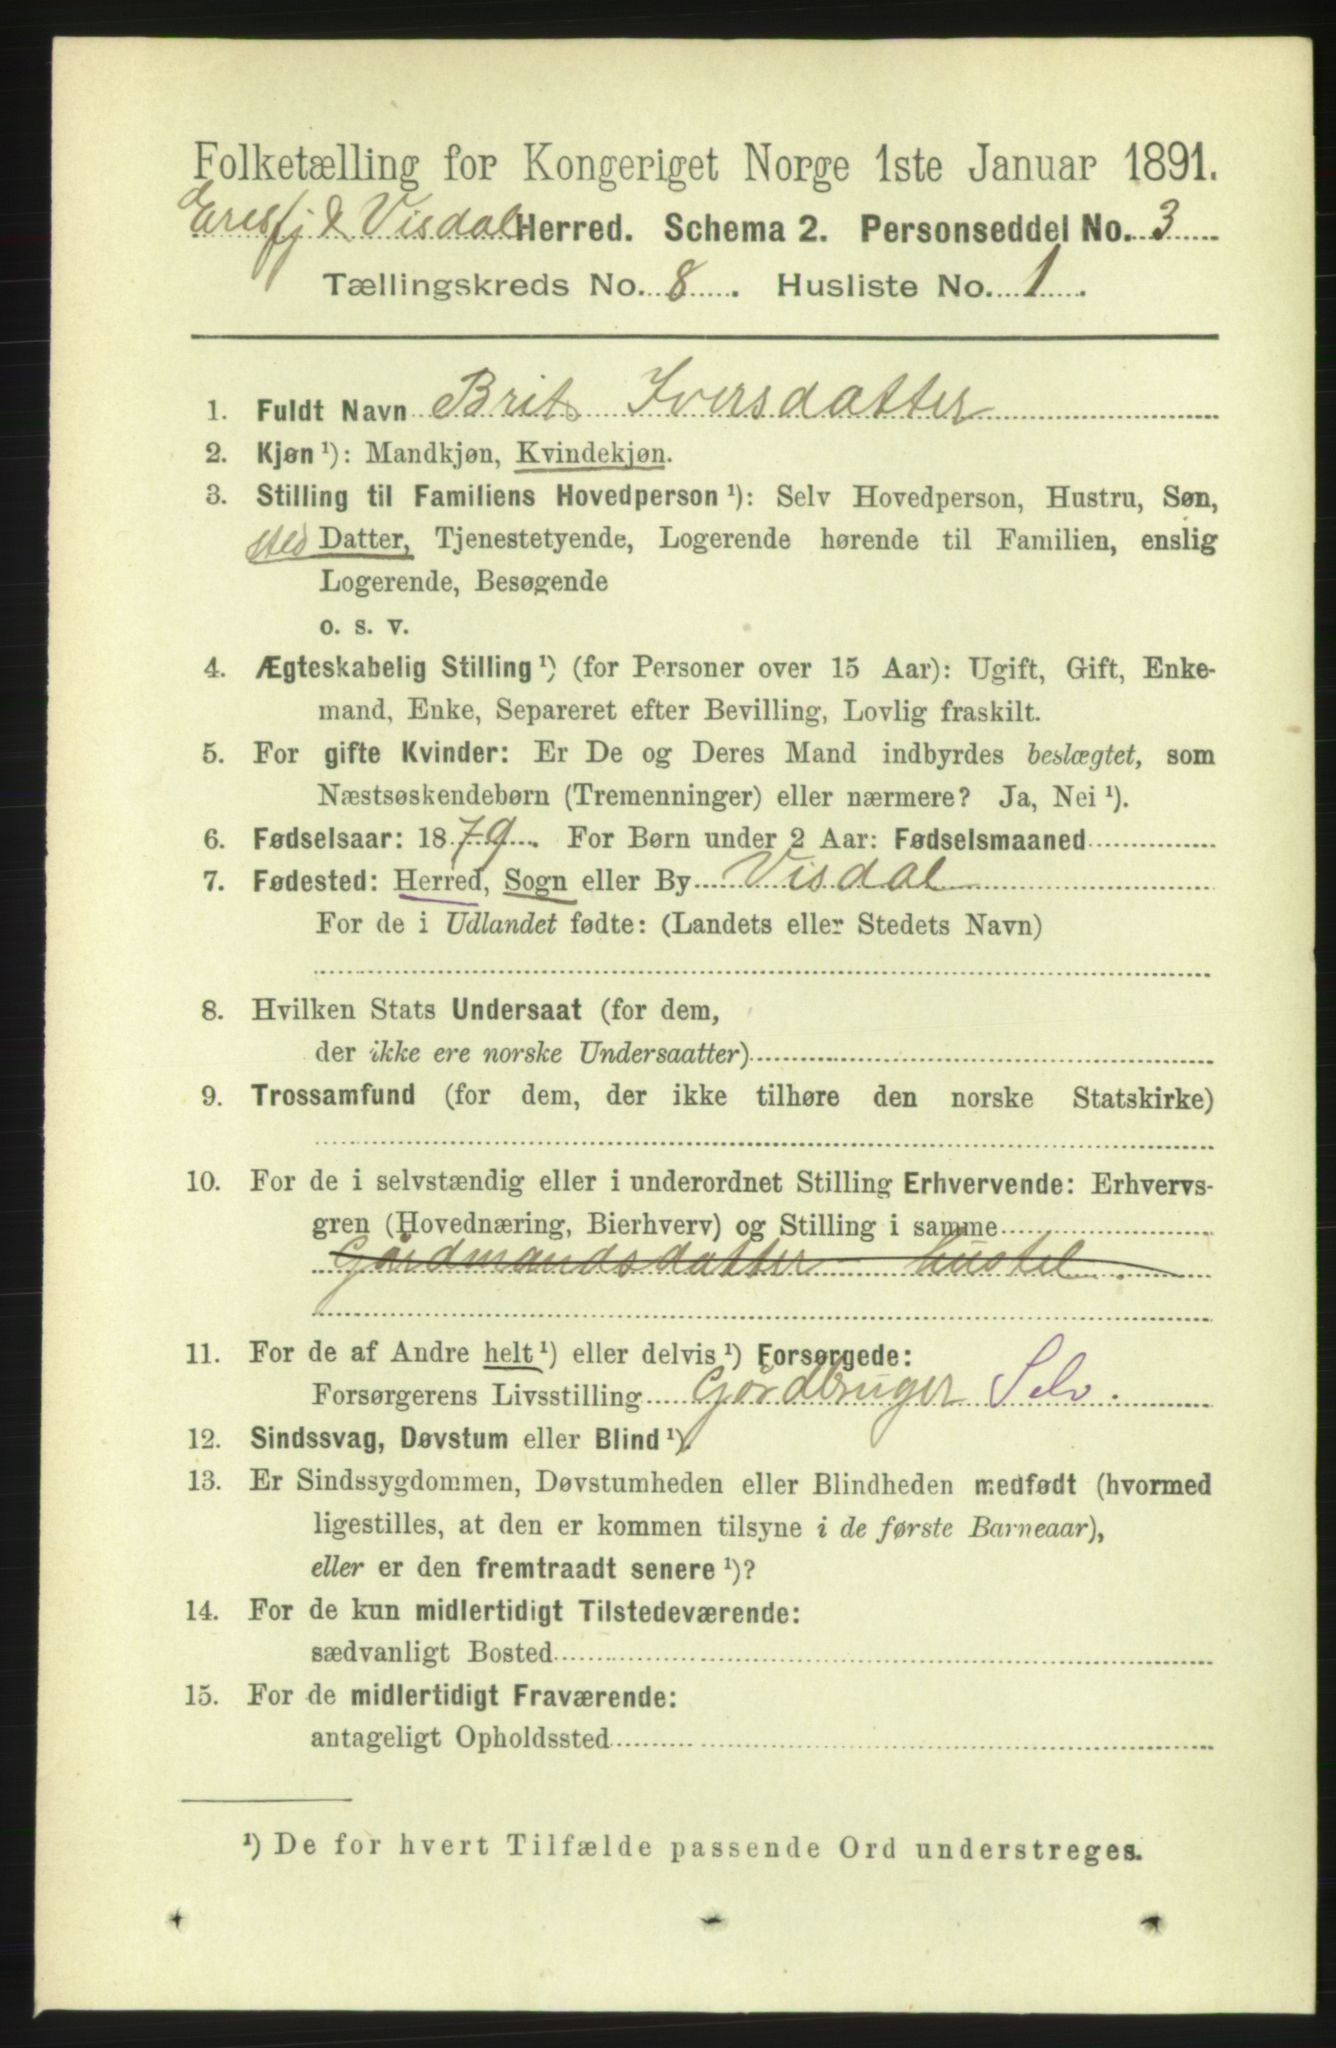 Folketælling for Kongeriget Norge 1ste Januar 1891.
Eresfj & Visdal Herred. Schema 2. Personseddel No. 3
Tællingskreds No. 8. Husliste No. 1.
1. Fuldt Navn Brit Iversdatter
2. Kjøn ¹): Mandkjøn, Kvindekjøn.
3. Stilling til Familiens Hovedperson ¹): Selv Hovedperson, Hustru, Søn,
sted Datter, Tjenestetyende, Logerende hørende til Familien, enslig
Logerende, Besøgende
o. s. v.
4. Ægteskabelig Stilling ¹) (for Personer over 15 Aar): Ugift, Gift, Enke-
mand, Enke, Separeret efter Bevilling, Lovlig fraskilt.
5. For gifte Kvinder: Er De og Deres Mand indbyrdes beslægtet, som
Næstsøskendebørn (Tremenninger) eller nærmere? Ja, Nei ¹).
6. Fødselsaar: 1879. For Børn under 2 Aar: Fødselsmaaned
7. Fødested: Herred, Sogn eller By Visdal
For de i Udlandet fødte: (Landets eller Stedets Navn)
8. Hvilken Stats Undersaat (for dem,
der ikke ere norske Undersaatter)
9. Trossamfund (for dem, der ikke tilhøre den norske Statskirke)
10. For de i selvstændig eller i underordnet Stilling Erhvervende: Erhvervs-
gren (Hovednæring, Bierhverv) og Stilling i samme
Gårdmandsdatter
11. For de af Andre helt ¹) eller delvis ¹) Forsørgede:
Forsørgerens Livsstilling Gårdbruger Selv.
12. Sindssvag, Døvstum eller Blind ¹).
13. Er Sindssygdommen, Døvstumheden eller Blindheden medfødt (hvormed
ligestilles, at den er kommen tilsyne i de første Barneaar),
eller er den fremtraadt senere ¹)?
14. For de kun midlertidigt Tilstedeværende:
sædvanligt Bosted
15. For de midlertidigt Fraværende:
antageligt Opholdssted
¹) De for hvert Tilfælde passende Ord understreges.